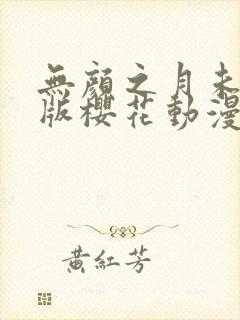 無顏之月未
版櫻花動漫
黃紅芳